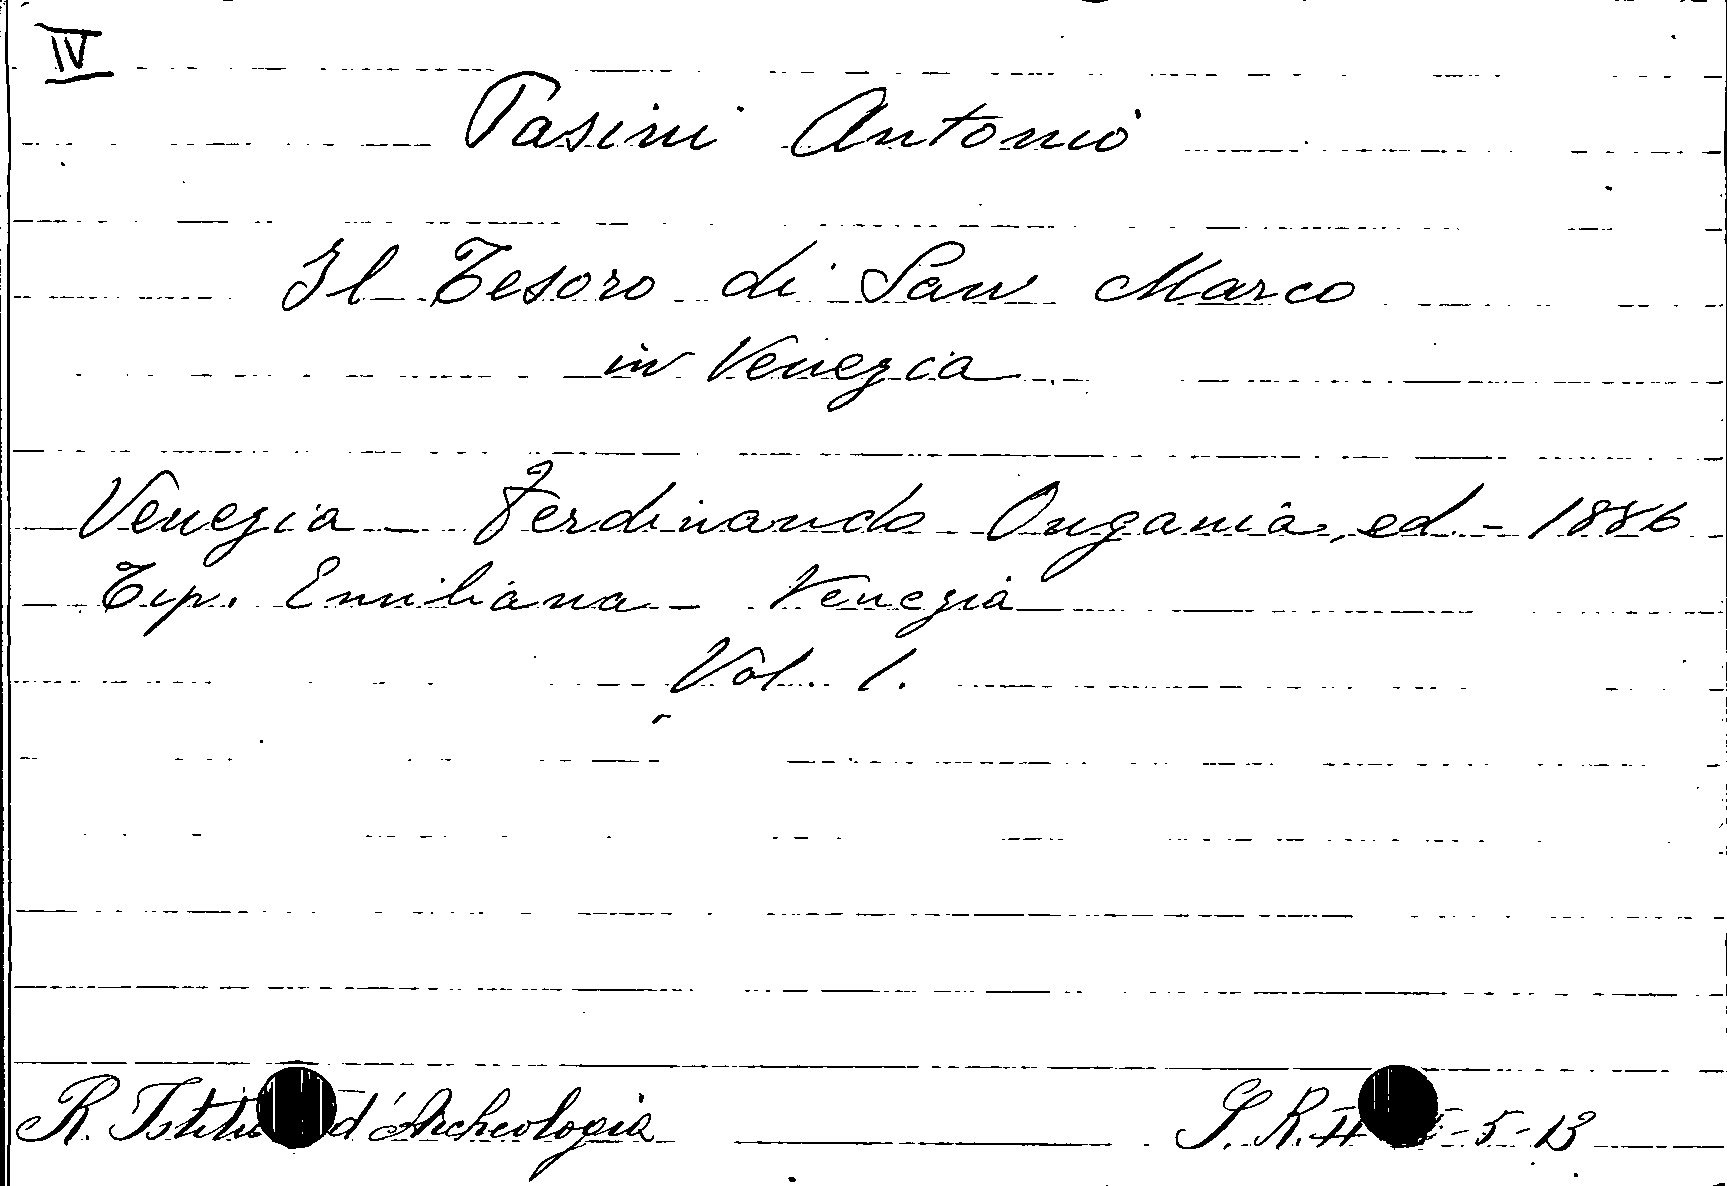 IV
Pasini Antonio
Il Tesoro di San Marco
in Venezia
Venezia - Ferdinando Ongania, ed. - 1886
Tip. Emiliana - Venezia
Vol. 1.
R. d'Archeologia S. R. -5-13